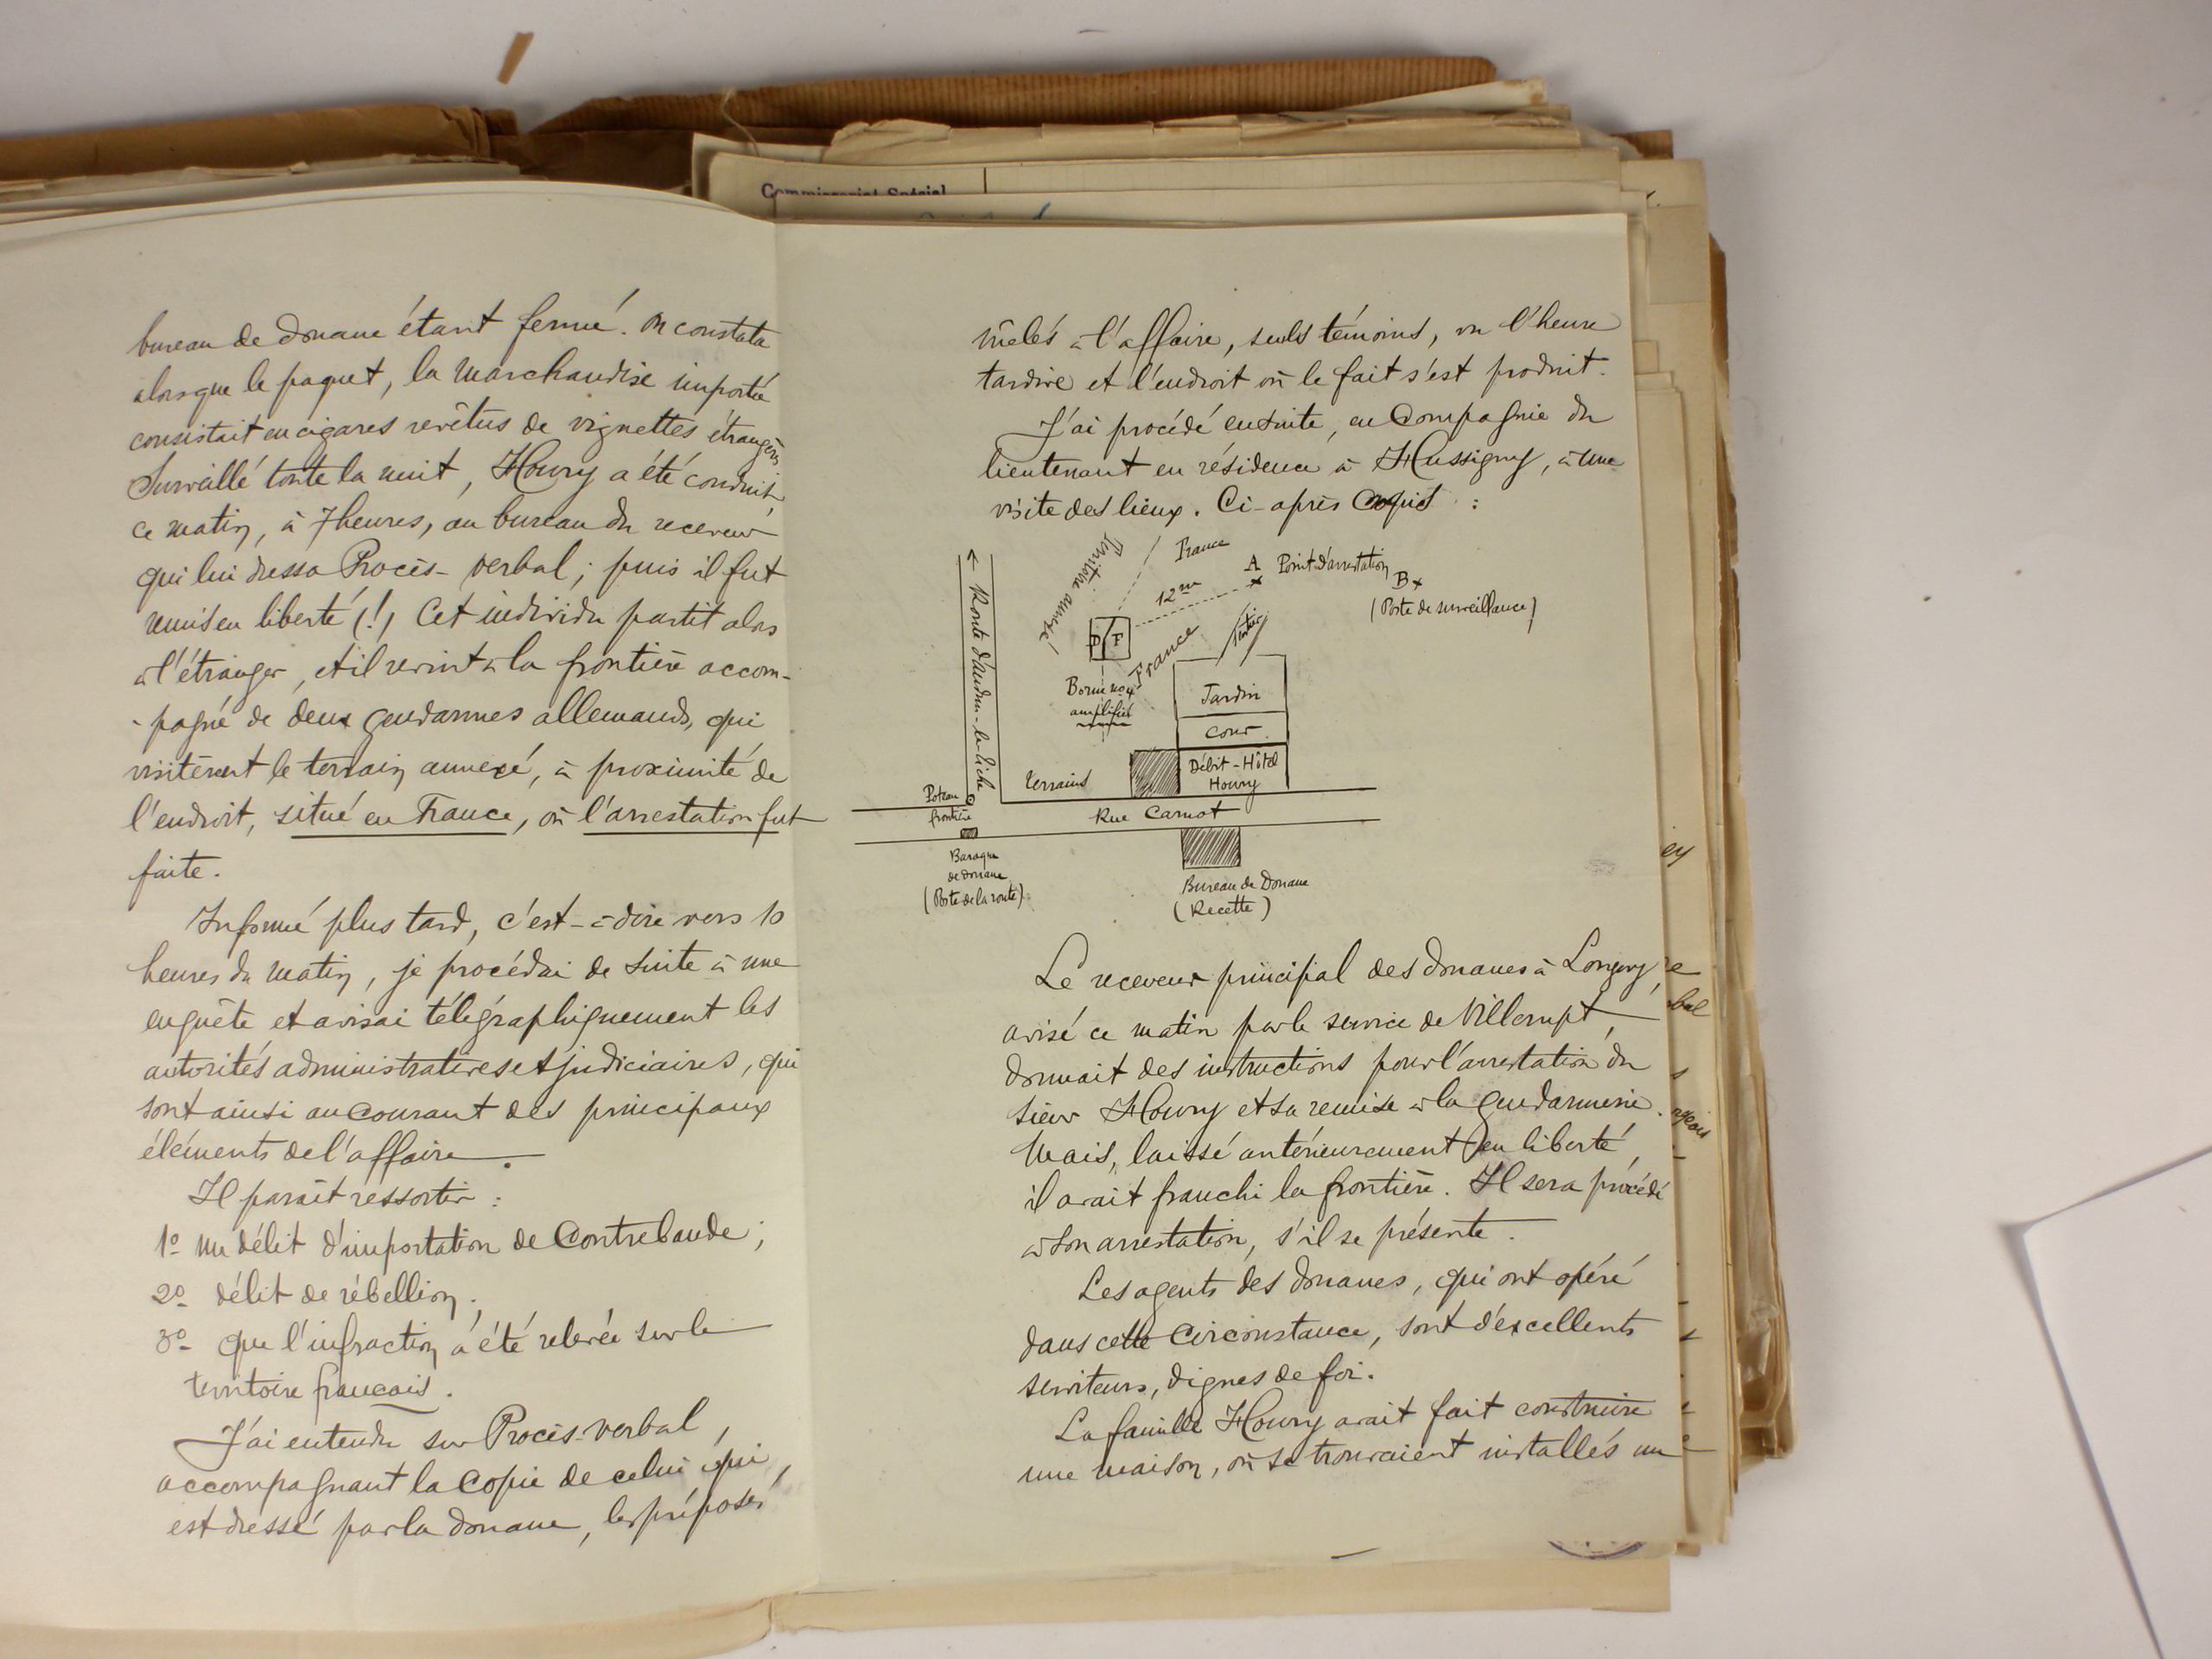 Commissariat Spécial
bureau de douane étant fermé. On constata
alors que le paquet, la marchandise importée
consistait en cigares revêtus de vignettes étrangères
Surveillé toute la nuit, Houry a été conduit,
ce matin, à 7 heures, au bureau du receveur
qui lui dressa Procès-verbal ; puis il fut
remis en liberté (!) Cet individu partit alors
à l'étranger, et il revint à la frontière accom-
-pagné de deux gendarmes allemands, qui
visitèrent le terrain annexé, à proximité de
l'endroit, situé en France, où l'arrestation fut
faite.
Informé plus tard, c'est-à-dire vers 10
heures du matin, je procédai de suite à une
enquête et avisai télégraphiquement les
autorités administratives et judiciaires, qui
sont ainsi au courant des principaux
éléments de l'affaire.
Il paraît ressortir :
1º un délit d'importation de contrebande ;
2º délit de rébellion ;
3º que l'infraction a été relevée sur le
territoire français.
J'ai entendu sur Procès-verbal,
accompagnant la copie de celui qui
est dressé par la douane, les préposés
mêlés à l'affaire, seuls témoins, vu l'heure
tardive et l'endroit où le fait s'est produit.
J'ai procédé ensuite, en compagnie du
lieutenant en résidence à Hussigny, à une
visite des lieux. Ci-après croquis :
Territoire annexé
France
12 m
A Point d'arrestation
B
(Poste de surveillance)
D F
France
Sentier
Route d'Audun-le-Tiche
Borne
amplifiée
Jardin
Cour
Débit-Hôtel
Houry
Terrains
Poteau
frontière
Rue Carnot
Baraque
de douane
(Poste de la route)
Bureau de Douane
(Recette)
Le receveur principal des douanes à Longwy,
avisé ce matin par le service de Villerupt,
donnait des instructions pour l'arrestation du
sieur Houry et sa remise à la gendarmerie.
Mais, laissé antérieurement en liberté,
il avait franchi la frontière. Il sera procédé
à son arrestation, s'il se présente.
Les agents des douanes, qui ont opéré
dans cette circonstance, sont d'excellents
serviteurs, dignes de foi.
La famille Houry avait fait construire
une maison, où se trouvaient installés un